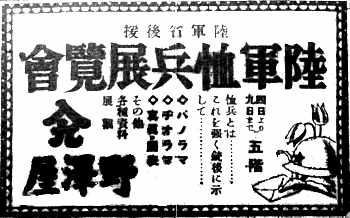 陸軍省後援
陸軍恤兵展覽會
四日より
九日まで
五階
恤兵とは………
これを強く銃後に示
して………
◇パノラマ
◇ヂオラマ
◇寫眞・圖表
その他
各種資料
展觀
野澤屋